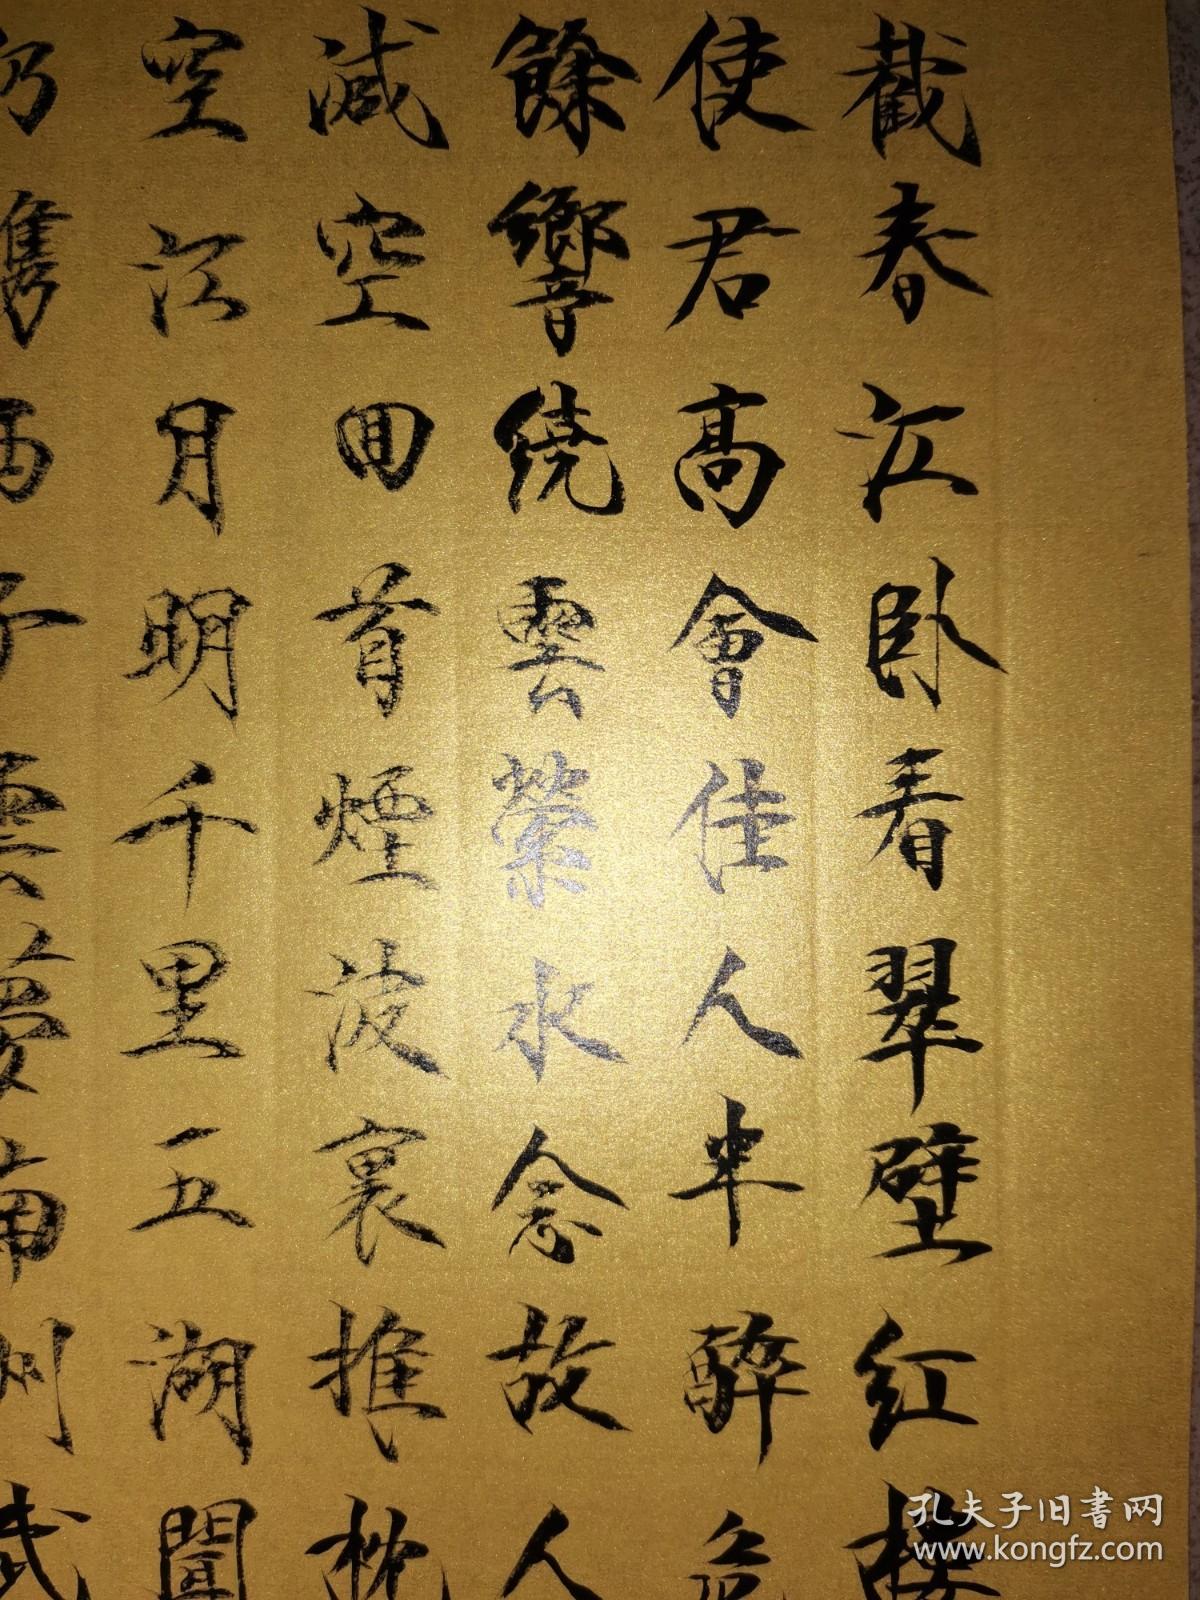 截春江臥看翠壁红樓
使君高會佳人半醉危
餘響繞雲縈水念故人
滅空回首煙波裏推枕
空江月明千里五湖聞
仍攜西子雲夢南州武
孔夫子旧書网
www.kongfz.com